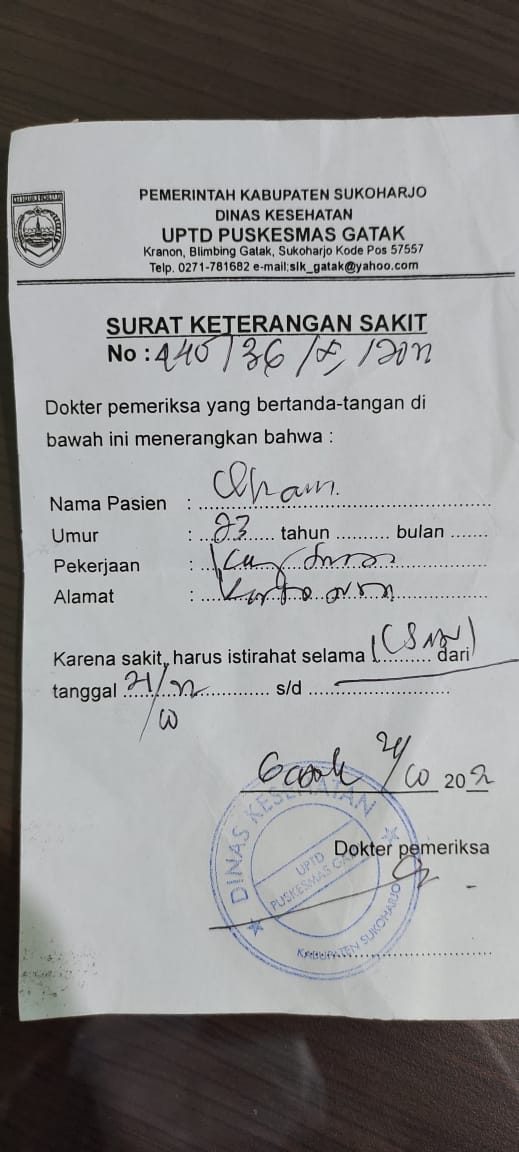 PEMERINTAH KABUPATEN SUKOHARJO
DINAS KESEHATAN
UPTD PUSKESMAS GATAK
Kranon, Blimbing Gatak, Sukoharjo Kode Pos 57557
Telp. 0271-781682 e-mail;slk_gatak@yahoo.com
SURAT KETERANGAN SAKIT
No :
Dokter pemeriksa yang bertanda-tangan di
bawah ini menerangkan bahwa :
Nama Pasien :
Umur : 23 tahun .......... bulan .......
Pekerjaan :
Alamat :
Karena sakit, harus istirahat selama 1 dari
tanggal 21/ s/d
20
DINAS KESEHATAN
Dokter pemeriksa
UPTD
PUSKESMAS GATAK
KABUPATEN SUKOHARJO